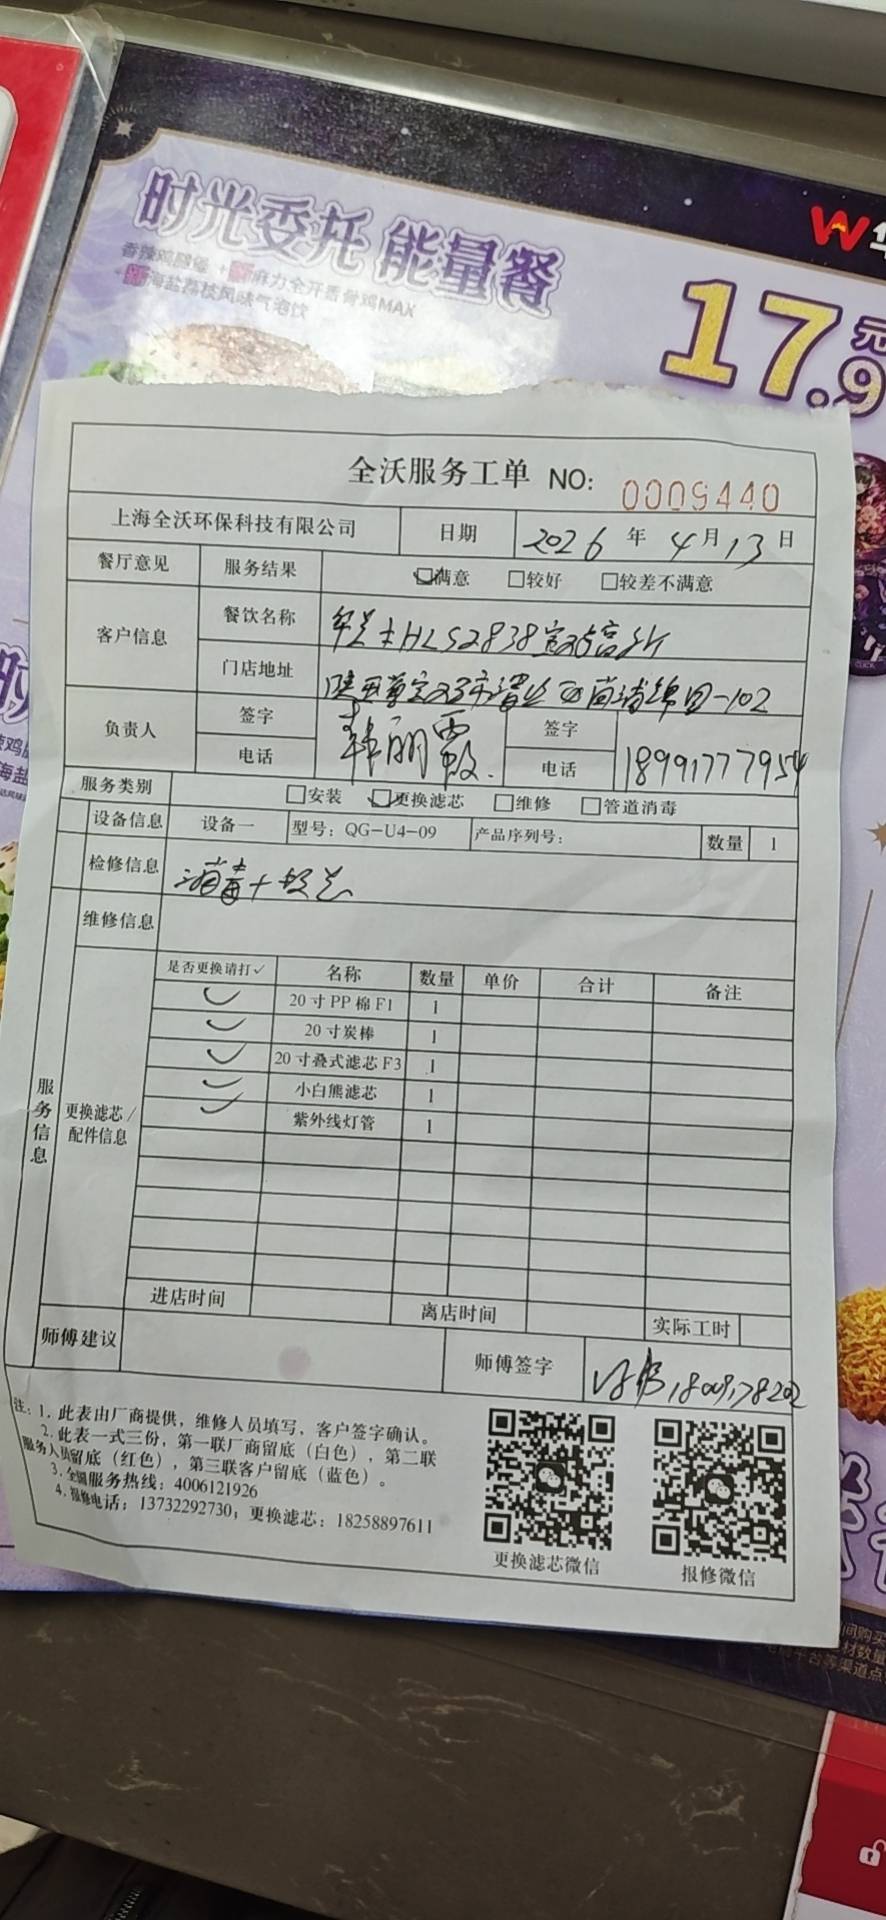 时光委托 能量餐
香辣鸡腿堡 + 新 麻力全开香骨鸡MAX
+ 新 海盐荔枝风味气泡饮
17.9元
全沃服务工单 NO: 0009440
上海全沃环保科技有限公司 日期 2026 年 4 月 13 日
餐厅意见 服务结果 满意 较好 较差不满意
客户信息 餐饮名称 华莱士HLS2838宝鸡高新
门店地址
负责人 签字 韩丽霞 签字
电话 电话 18991777954
服务类别 安装 更换滤芯 维修 管道消毒
设备信息 设备一 型号: QG-U4-09 产品序列号: 数量 1
检修信息 消毒+换芯
维修信息
服务信息
更换滤芯/配件信息
是否更换请打✓ 名称 数量 单价 合计 备注
✓ 20寸PP棉F1 1
✓ 20寸炭棒 1
✓ 20寸叠式滤芯F3 1
✓ 小白熊滤芯 1
✓ 紫外线灯管 1
进店时间 离店时间 实际工时
师傅建议 师傅签字 18009178202
注: 1. 此表由厂商提供，维修人员填写，客户签字确认。
2. 此表一式三份，第一联厂商留底（白色），第二联
服务人员留底（红色），第三联客户留底（蓝色）。
3. 全国服务热线: 4006121926
4. 报修电话: 13732292730; 更换滤芯: 18258897611
更换滤芯微信 报修微信